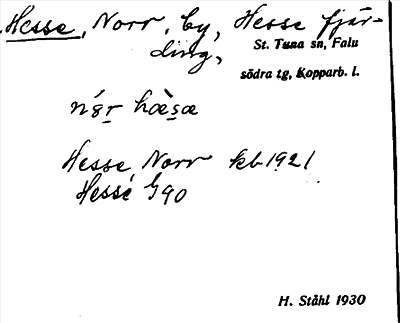 Hesse, Norr, by, Hesse fjär-
ding,
St. Tuna sn, Falu
södra tg, Kopparb. l.
Hesse, Norr kb 1921
Hessé G90
H. Ståhl 1930